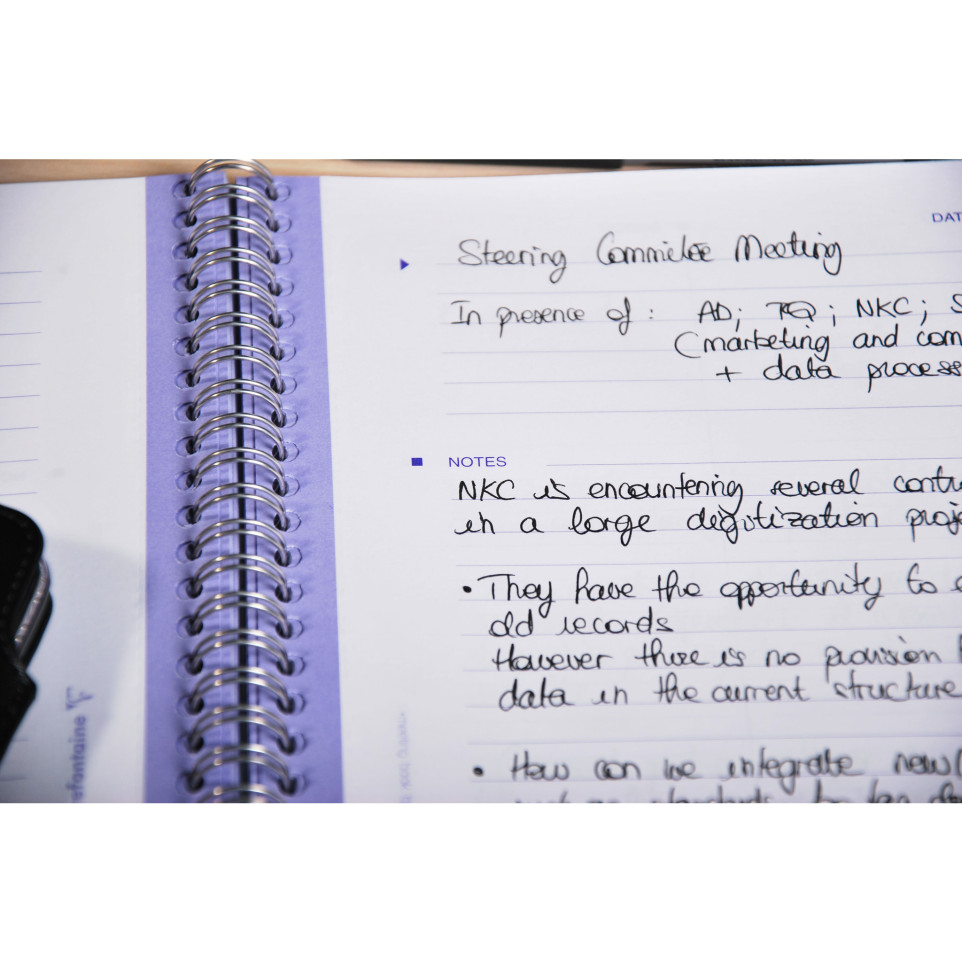 DAT
Steering Committee Meeting
In presence of : AD; TQ; NKC; S
(marketing and com
+ data process
NOTES
NKC is encountering several contr
in a large digitization proje
• They have the opportunity to
old records
However there is no provision
data in the current structure
• How can we integrate new(
fontaine